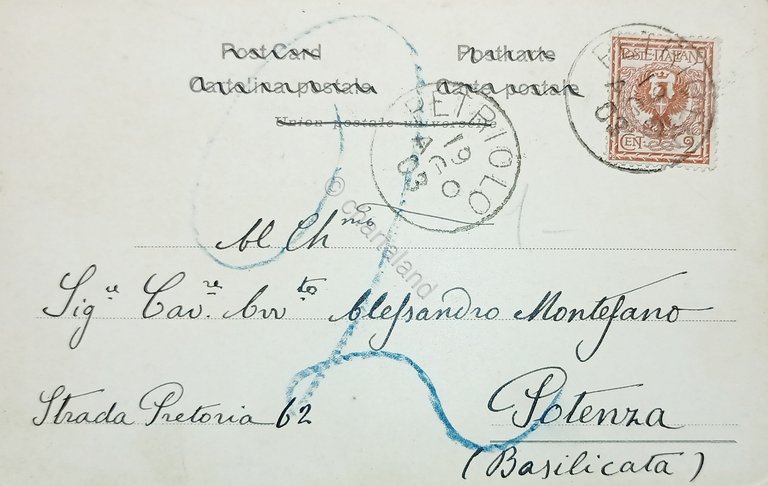 Post Card Postkarte
Cartolina postale Carte postale
Union postale universelle
POSTE ITALIANE
CEN. 2
PETRIOLO
19
AGO
03
© chartaland
Al Ch.mo
Sig.re Cav.re Avv.to Alessandro Montefano
Strada Pretoria 62 Potenza
(Basilicata)